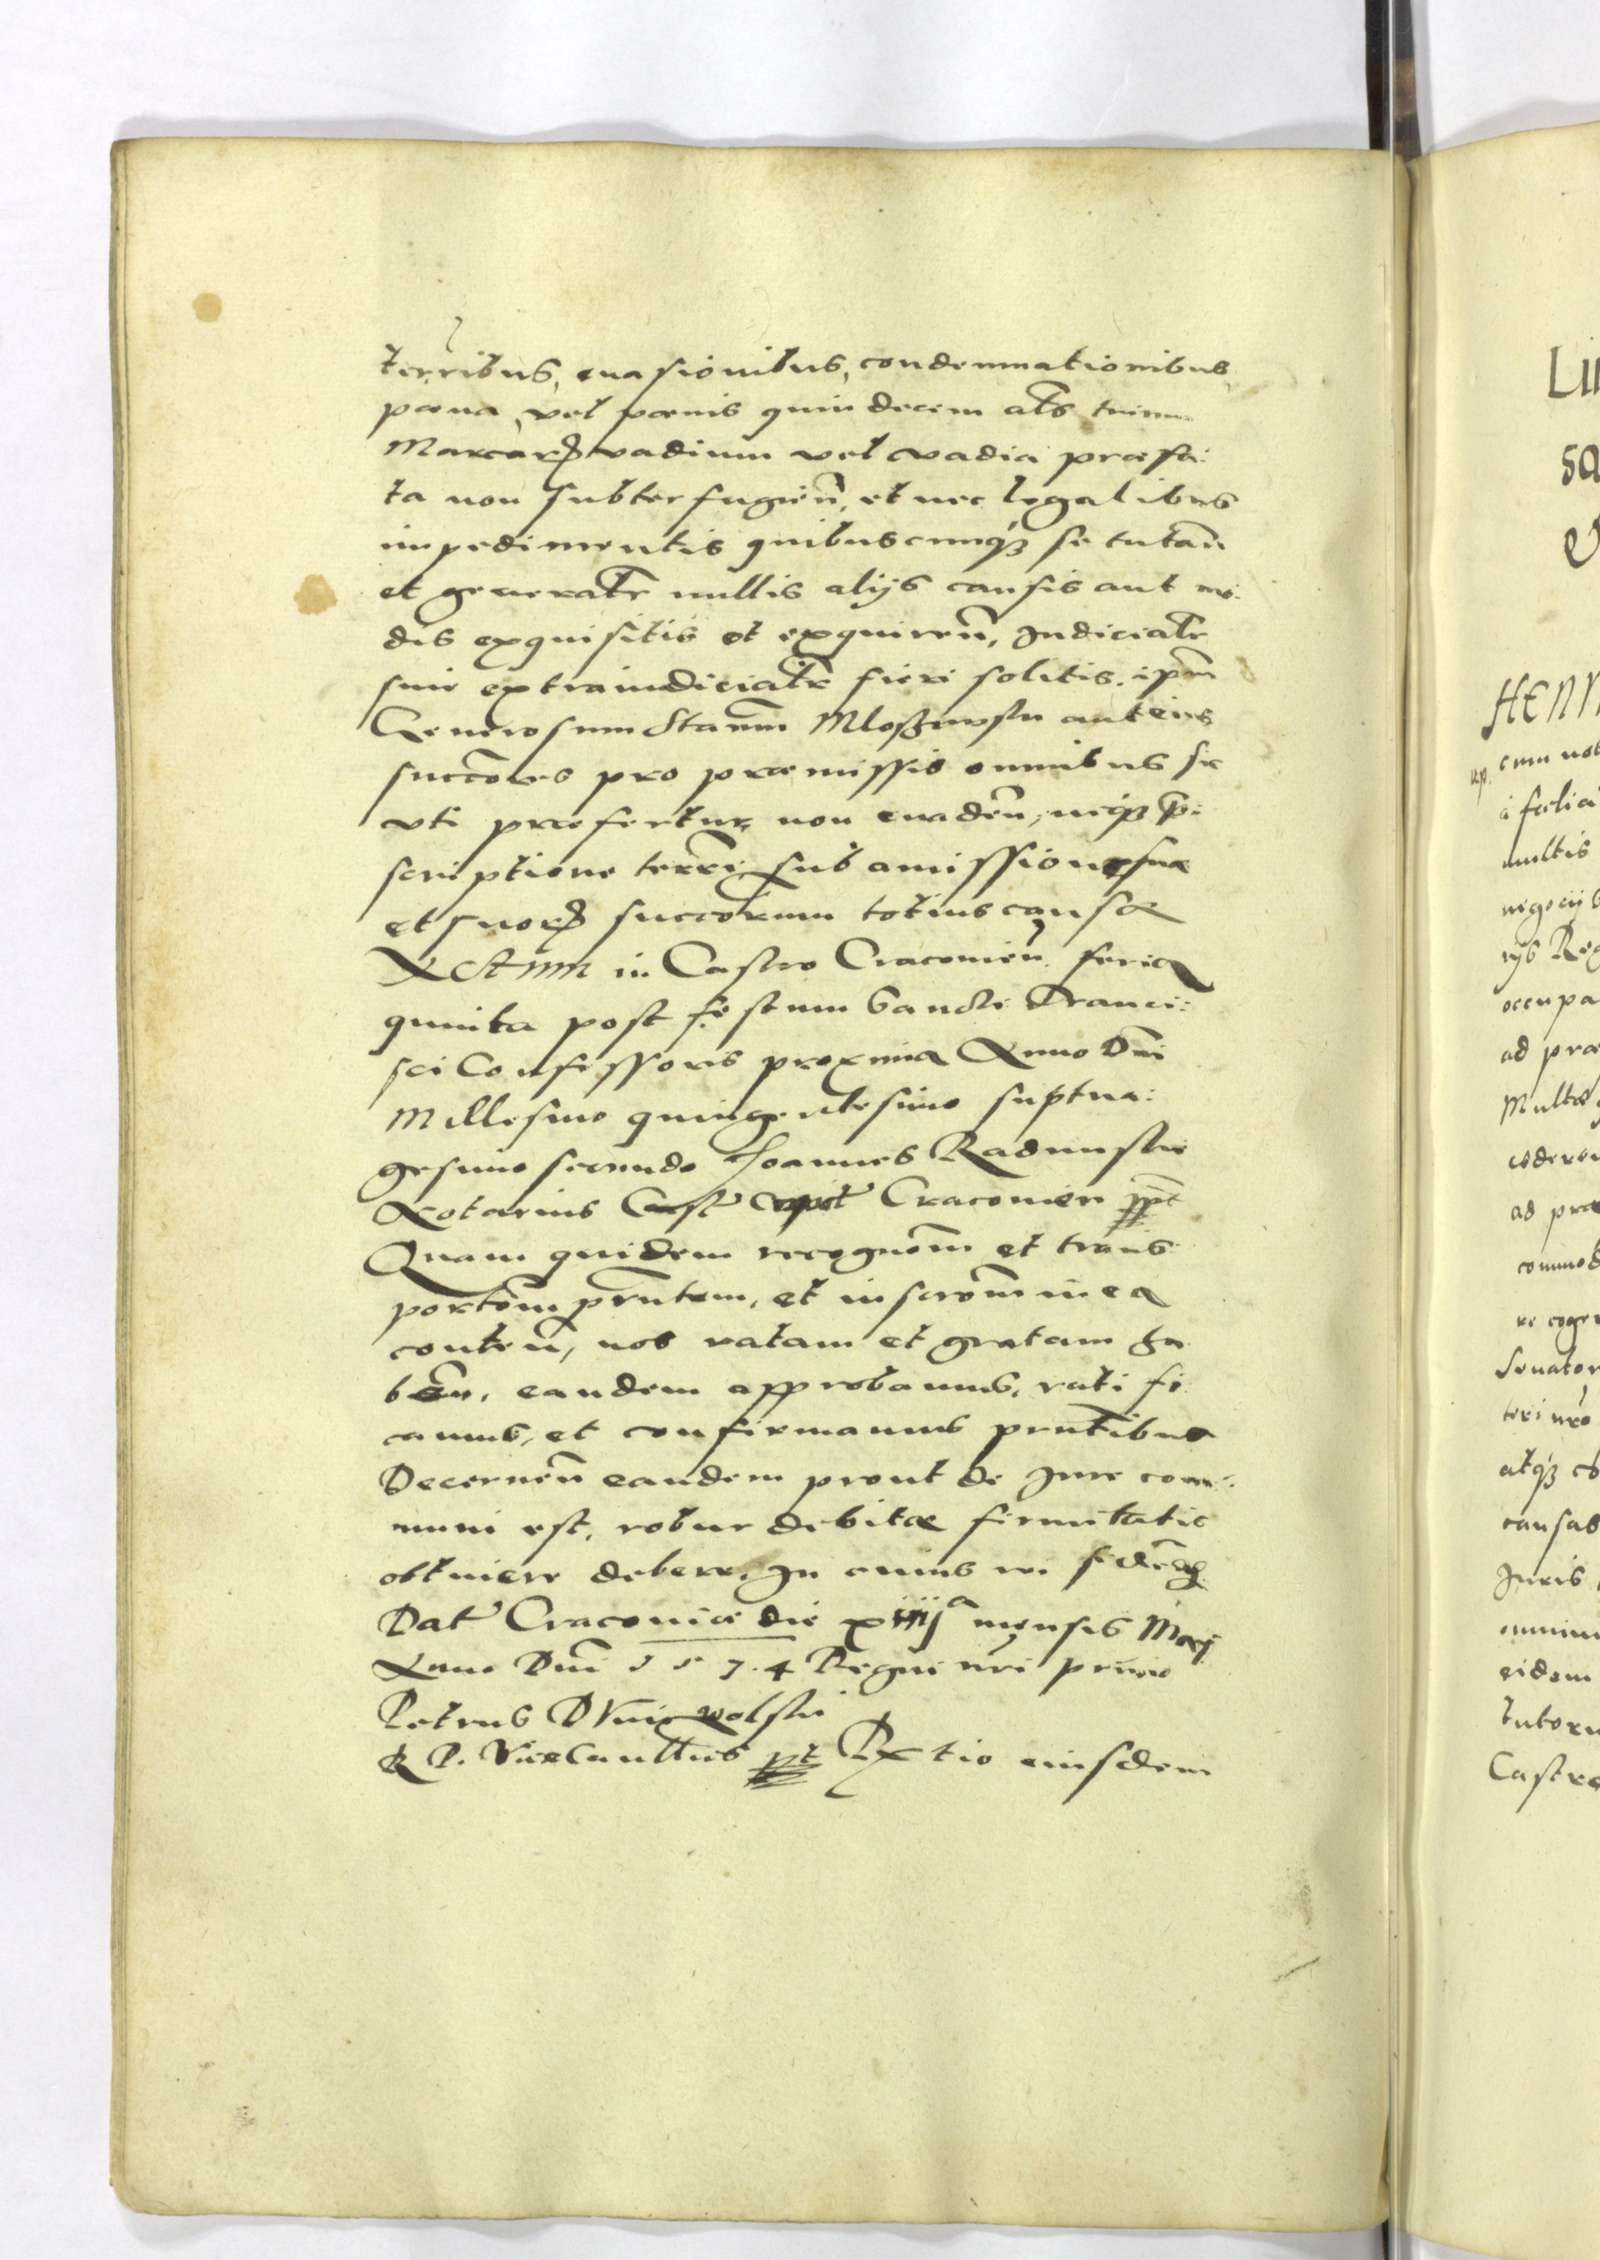 terribus, euasionibus, condemnationibus,
pœna, vel pœnis quindecem als trium
Marcar̃ vadium vel vadia præfa:
ta non subterfugien̄, et nec legalibus
impedimentis quibuscunq3 se tutan̄
et generalr̄ nullis alijs causis aut mo:
dis exquisitis et exquiren̄, Iudicialr̄
siue extraiudicialr̄ fieri solitis, ipm̄
Generosum Stanm̄ Mloszowski aut eius
succōres pro præmissis omnibus sic
vti præfertur, non euaden̄, neq3 p̄:
scriptione terr̄i sub amissione suæ
et suor̃ succōrum totius causæ
Actum in Castro Cracouien̄, feria
quinta post festum Sancti Franci:
sci Confessoris proxima Anno Dn̄i
Millesimo quingentesimo septua:
gesimo secundo Joannes Radunski
Notarius Castr̄ Capit̄ Cracouien ppt̄
Quam quidem recognōm et trans
portōm pn̄tem, et inscrōm in ea
conten̄, nos ratam et gratam ha
ben̄, eandem approbamus, ratifi
camus, et confirmamus pn̄tibus
Decernen̄ eandem prout de Iure com:
muni est, robur debitæ firmitatis
obtinere debere. In cuius rei fidem̄
Dat̄ Cracouiæ die xiiij a mensis Maij
Anno Dn̄i 1 5 7. 4 Regni nr̄i primo
Petrus DVnin Wolski
R P. ViceCancellarius ppt Rx tio eiusdem
LII
sa
HENR
cum nob
a fœlici
multis
negocijs
rijs Reg
occupa
ad præ
Multæ
cedere
ad præ
commod
re cogn
Senator
teri nr̄o
atq3
causas
Iuris
omnium
eidem
tutoru
Castre